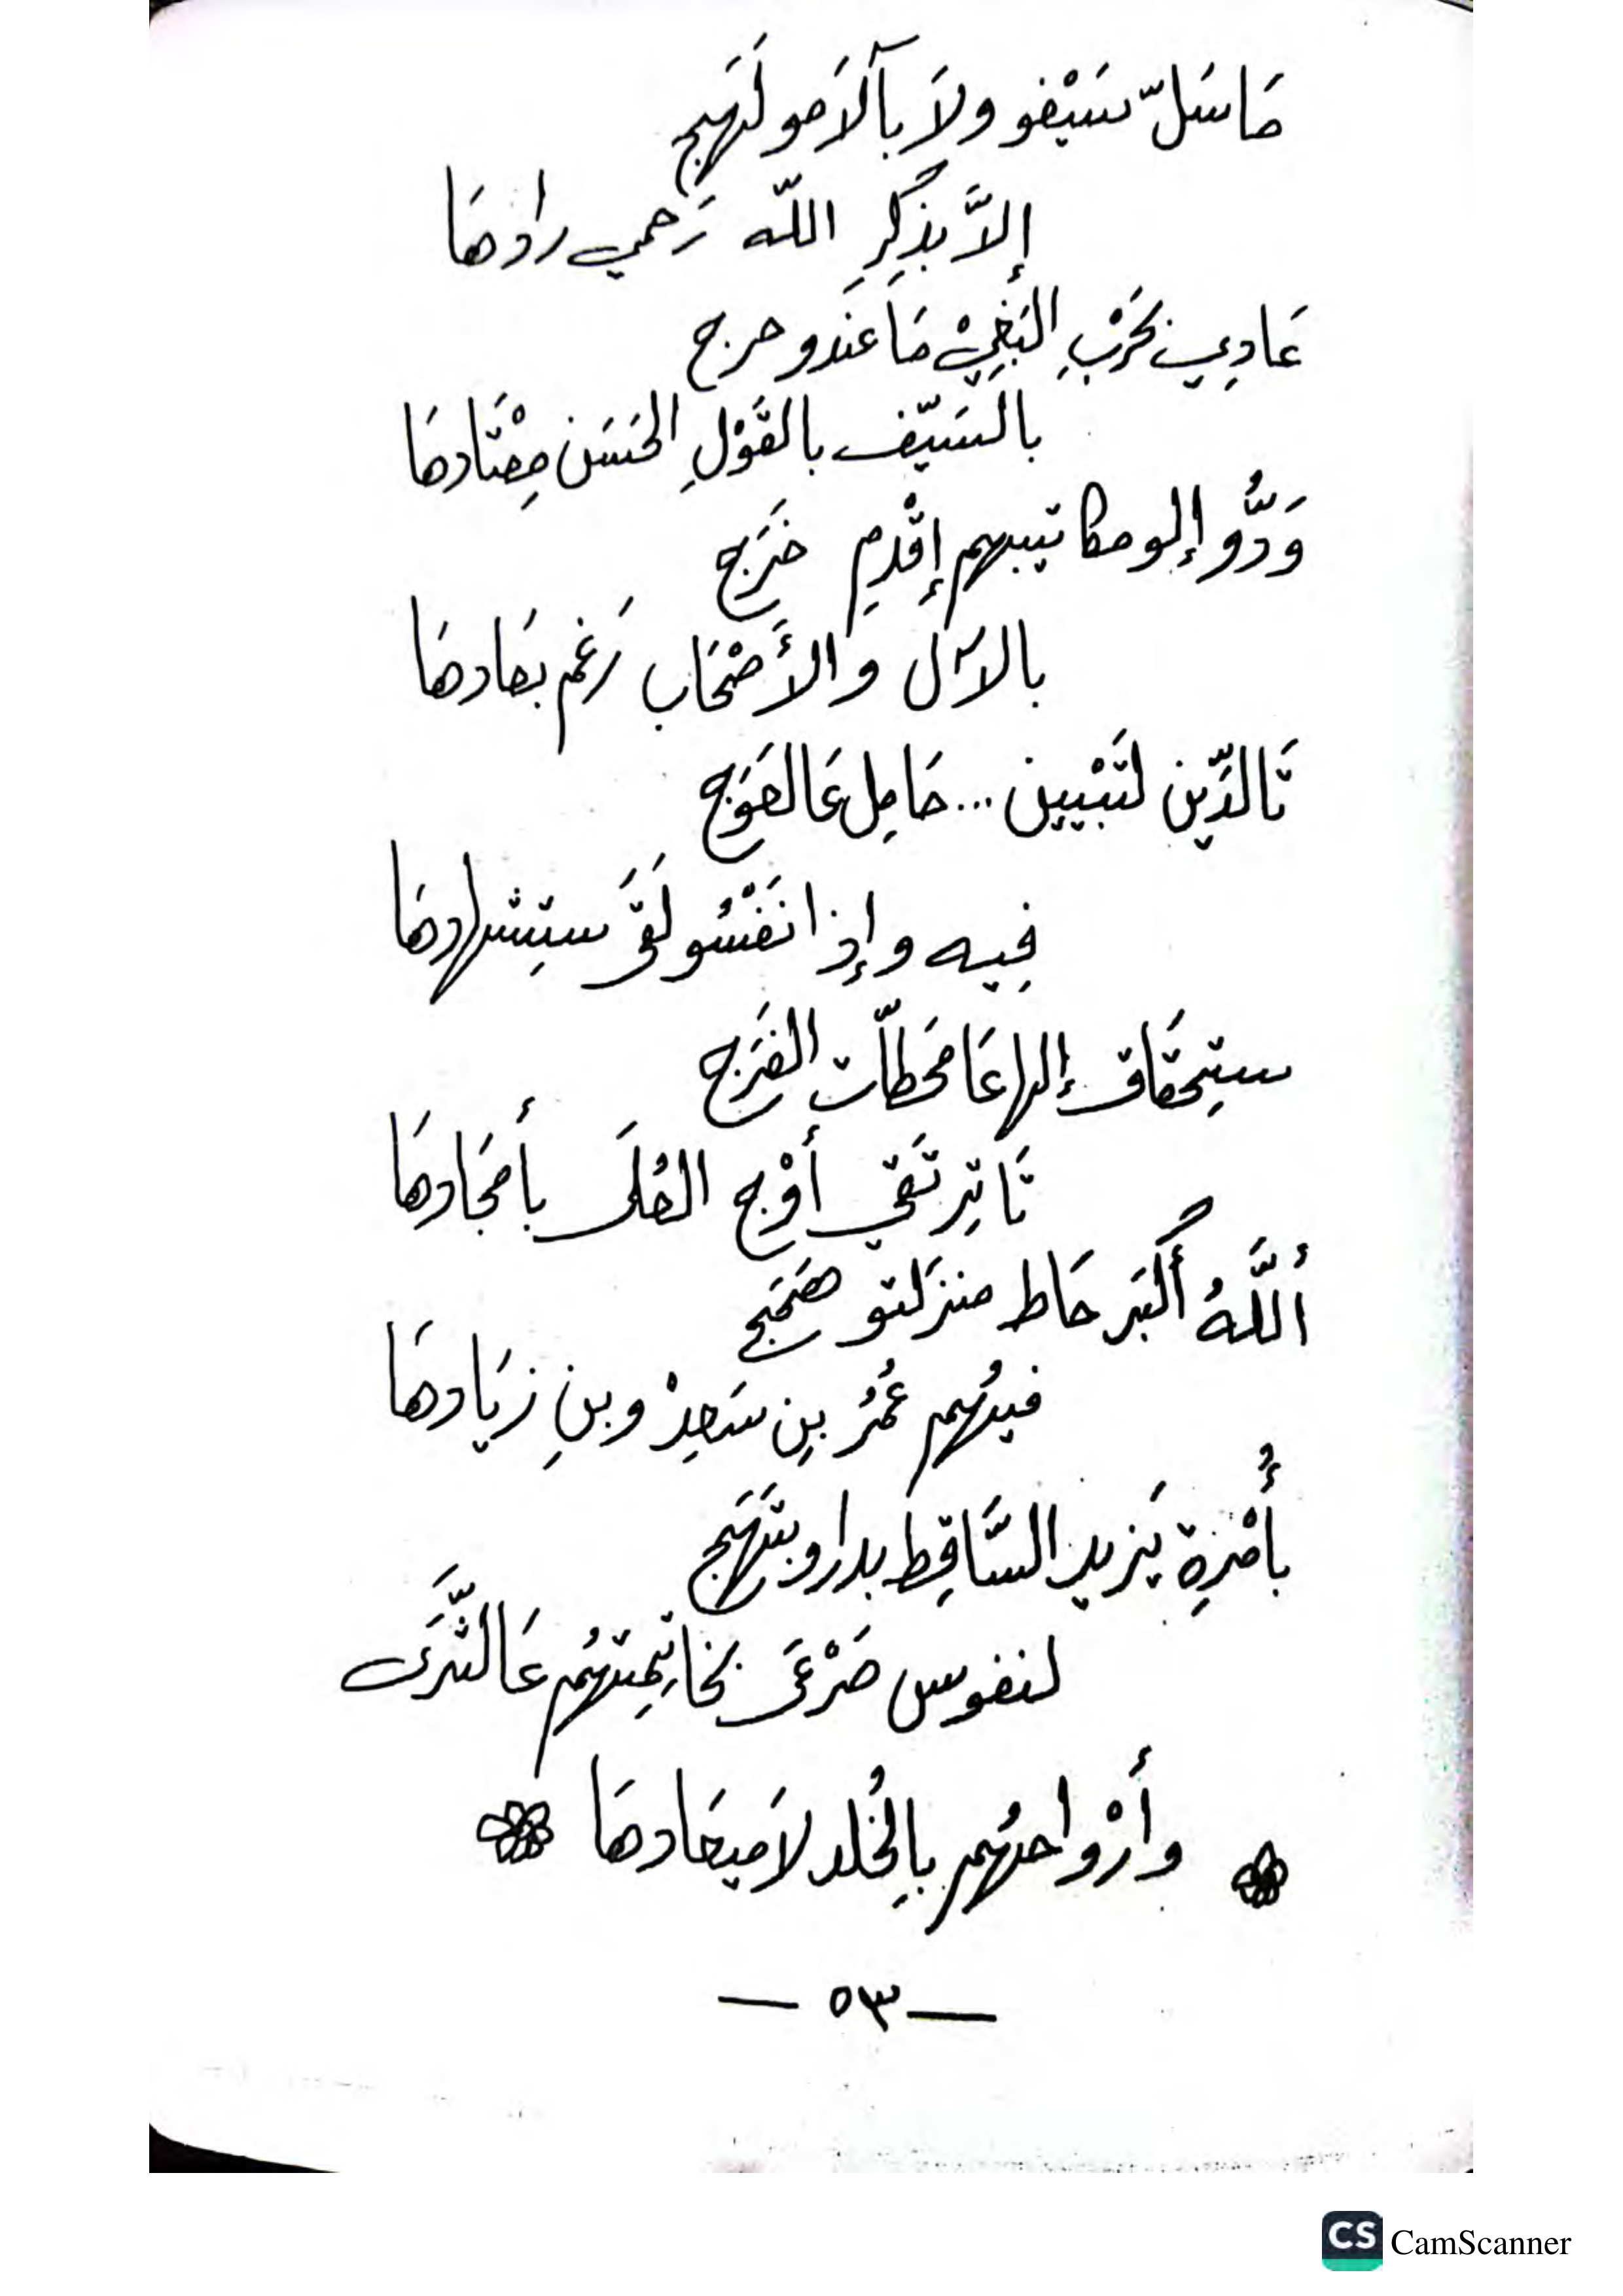 مَا سَلّ سَيْفو ولَا بآلامو لَهَج
إلاَّ بذِكِرِ اللّه رَحمي رادهَا
عَادِي بحَرْبِ البَغِيْ مَا عَندو حرج
بالسَيّف بالقَوْلِ الحَسَن مِعْتَادهَا
وَدُّو إلو مكاتيبهم إقْدِمِ خَرَج
بالآل والأَصْحَاب رَغم بعَادهَا
تَالدِّين لتَبْيين... حَامِل عَالعَوَج
فِيه وإذا نَفْسُو لَقَى ستِشهادهَا
ستِحقَاق إلها عَا محَطّات الفَرَج
تَا تِرتَقي أوْج العُلَى بأَمجَادهَا
أللَّهُ أَكبَر حَاط منزَلتو همَج
فيهُم عُمَرُ بِن سَعِدْ وبنِ زيَادهَا
بأُمْرةِ يَزيد السَّاقِط بدارو بتَهَج
لنفوس صَرْعَى بخاتِمِتهُم عَالثَّرَى
وأَرْواحهُم بالِخُلد لاَميعَادهَا
— ٥٣ —
CS CamScanner